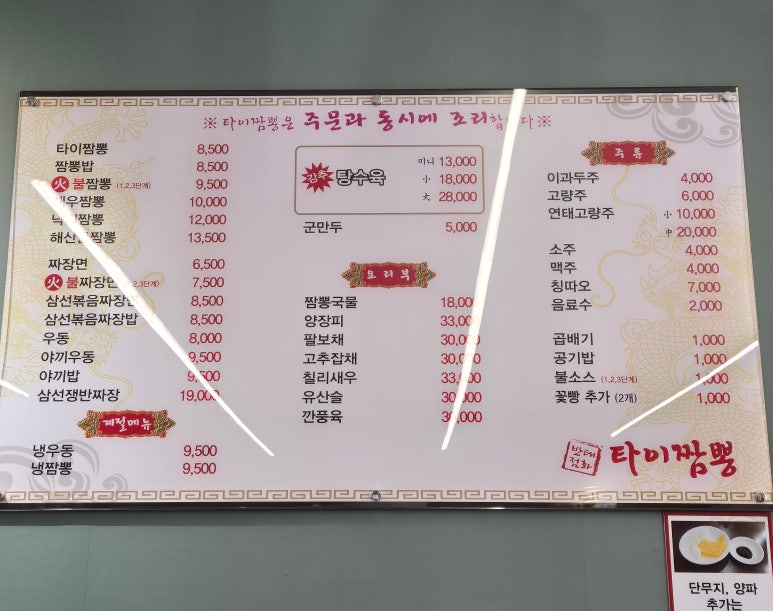 ※ 타이짬뽕은 주문과 동시에 조리합니다 ※
타이짬뽕 8,500
짬뽕밥 8,500
火 불짬뽕 (1,2,3단계) 9,500
새우짬뽕 10,000
12,000
해산물짬뽕 13,500
짜장면 6,500
火 불짜장면 (1,2,3단계) 7,500
삼선볶음짜장면 8,500
삼선볶음짜장밥 8,500
우동 8,000
야끼우동 9,500
야끼밥 9,500
삼선쟁반짜장 19,000
계절메뉴
냉우동 9,500
냉짬뽕 9,500
강추 탕수육 미니 13,000
小 18,000
大 28,000
군만두 5,000
요리부
짬뽕국물 18,000
양장피 33,000
팔보채 30,000
고추잡채 30,000
칠리새우 33,000
유산슬 30,000
깐풍육 30,000
주류
이과두주 4,000
고량주 6,000
연태고량주 小 10,000
中 20,000
소주 4,000
맥주 4,000
칭따오 7,000
음료수 2,000
곱배기 1,000
공기밥 1,000
불소스 (1,2,3단계) 1,000
꽃빵 추가 (2개) 1,000
반점 타이짬뽕
단무지, 양파
추가는